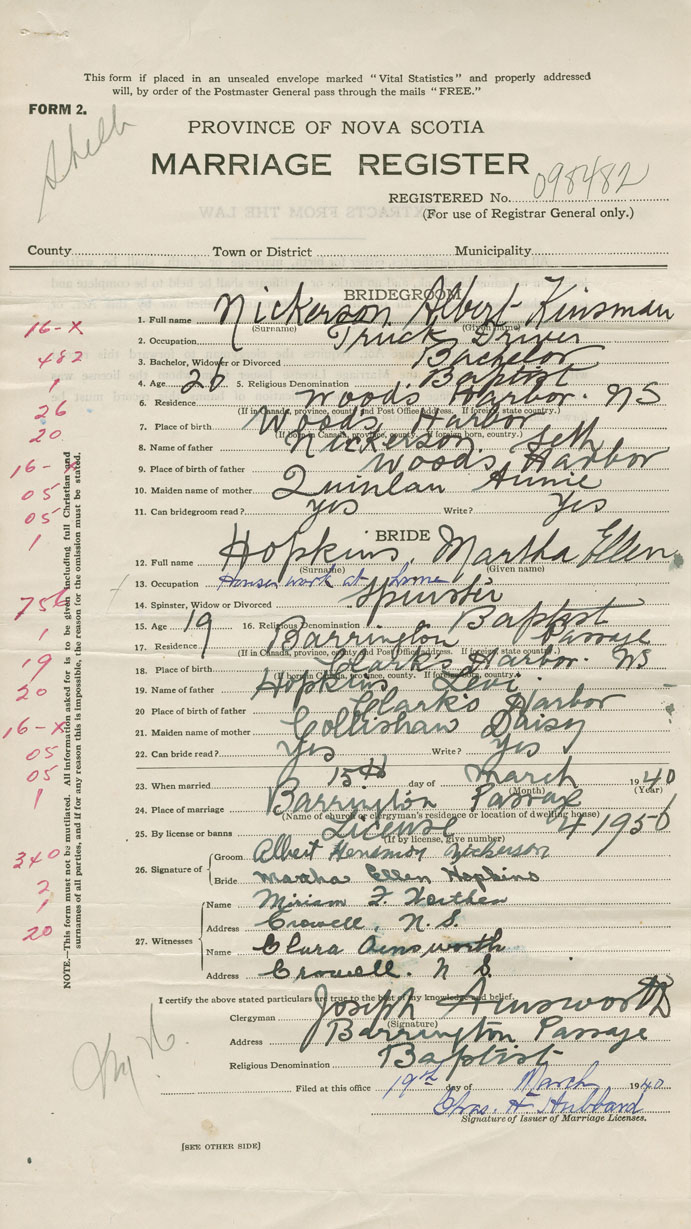 This form if placed in an unsealed envelope marked "Vital Statistics" and properly addressed
will, by order of the Postmaster General pass through the mails "FREE."
FORM 2.
Shelb
PROVINCE OF NOVA SCOTIA
MARRIAGE REGISTER
REGISTERED No. 098482
(For use of Registrar General only.)
County Town or District Municipality
BRIDEGROOM
1. Full name Nickerson Albert Kinsman
(Surname) (Given name)
16-X
2. Occupation Truck Driver
482
3. Bachelor, Widower or Divorced Bachelor
1
4. Age 26 5. Religious Denomination Baptist
26
6. Residence Woods Harbor. NS
(If in Canada, province, county and Post Office address. If foreign, state country.)
20
7. Place of birth Woods Harbor
(If born in Canada, province, county. If foreign born, country.)
8. Name of father Nickerson, Seth
16-X
9. Place of birth of father Woods Harbor
05
10. Maiden name of mother Quinlan Annie
05
11. Can bridegroom read? yes Write? Yes
1
BRIDE
12. Full name Hopkins, Martha Ellen
(Surname) (Given name)
13. Occupation Housework at home
756
14. Spinster, Widow or Divorced Spinster
1
15. Age 19 16. Religious Denomination Baptist
17. Residence Barrington Passage
(If in Canada, province, county and Post Office address. If foreign, state country.)
19
18. Place of birth Clark's Harbor. NS
(If born in Canada, province, county. If foreign born, country.)
20
19. Name of father Hopkins Levi
20 Place of birth of father Clark's Harbor
16-X
21. Maiden name of mother Collishaw Daisy
05
22. Can bride read? Yes Write? Yes
05
23. When married 15th day of March 1940
(Month) (Year)
1
24. Place of marriage Barrington Passage
(Name of church or clergyman's residence or location of dwelling house)
25. By license or banns License 41956
(If by license, give number)
340
26. Signature of Groom Albert Nickerson
2
Bride Martha Ellen Hopkins
1
27. Witnesses Name Miriam F.
20
Address Crowell, N.S.
Name Clara Ainsworth
Address Crowell. N S.
NOTE.—This form must not be mutilated. All information asked for is to be given including full Christian and
surnames of all parties, and if for any reason this is impossible, the reason for the omission must be stated.
I certify the above stated particulars are true to the best of my knowledge and belief.
Clergyman Joseph Ainsworth
(Signature)
Address Barrington Passage
Religious Denomination Baptist
Filed at this office 19th day of March 1940
Chas. H. Hubbard
Signature of Issuer of Marriage Licenses.
[SEE OTHER SIDE]